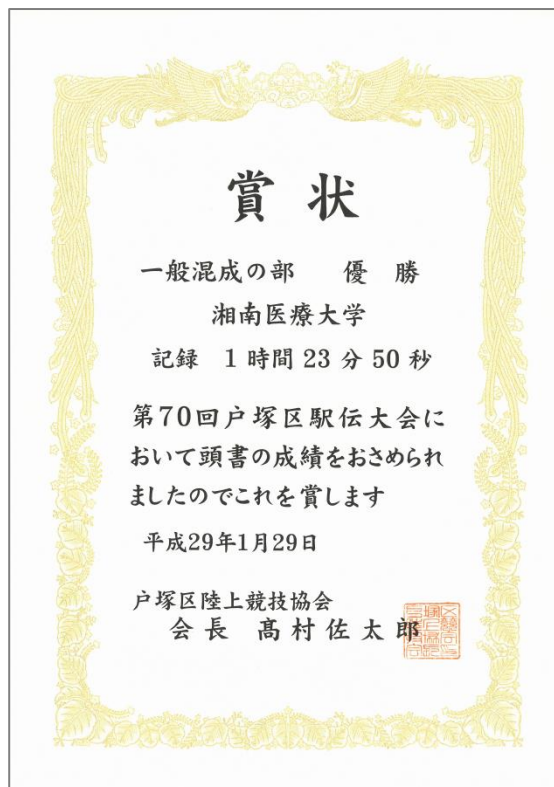 賞状
一般混成の部　優勝
湘南医療大学
記録　1時間23分50秒
第70回戸塚区駅伝大会に
おいて頭書の成績をおさめられ
ましたのでこれを賞します
平成29年1月29日
戸塚区陸上競技協会
会長　髙村佐太郎